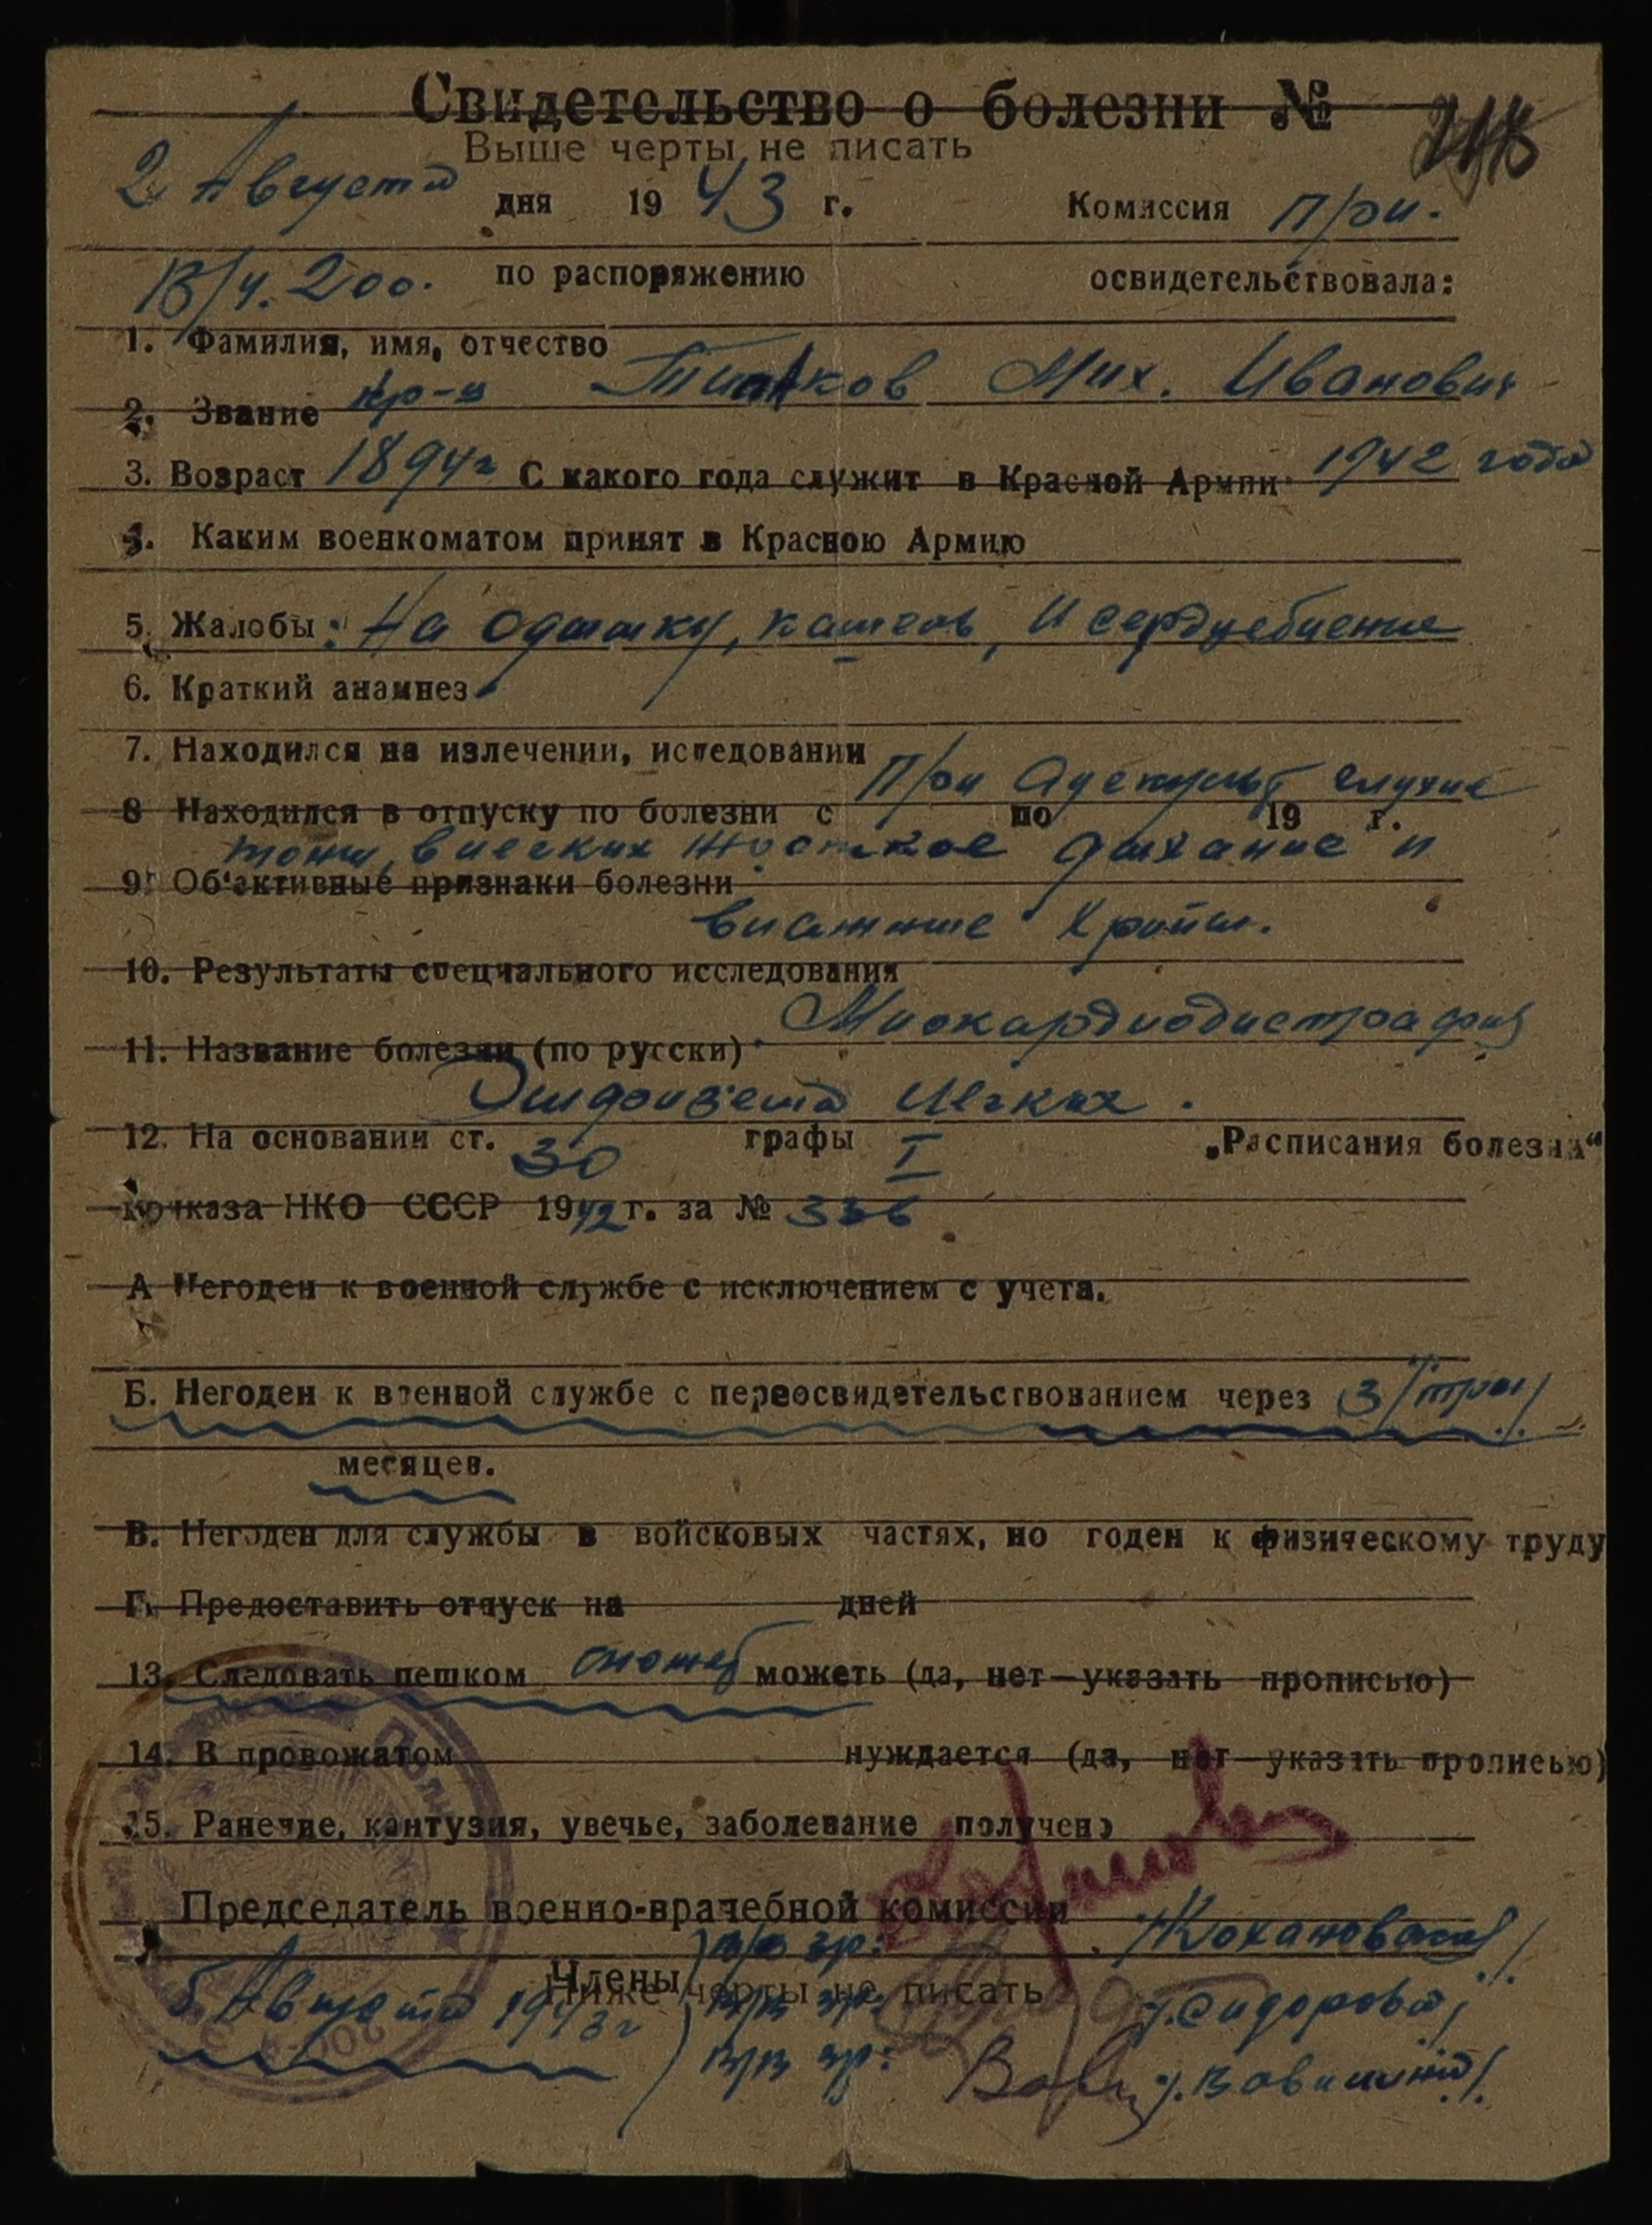 Свидетельство о болезни №
Выше черты не писать
2 Августа дня 1943 г. Комиссия При.
В/ч. 200. по распоряжению освидетельствовала:
1. Фамилия, имя, отчество
Мих. Иванович
2. Звание кр-ц
3. Возраст 1894г С какого года служит в Красной Армии 1942 года
4. Каким военкоматом принят в Красною Армию
5. Жалобы: На одышку, кашель, и сердцебиение
6. Краткий анамнез
7. Находился на излечении, иследовании
При Аускульт глухие
8 Находился в отпуску по болезни с по 19 г.
тоны, в легких жесткое дыхание и
9. Об'ективные признаки болезни
влажные хрипы.
10. Результаты специального исследования
Миокардиодистрафия
11. Название болезни (по русски)
Эмфизема легких.
12. На основании ст. 30 графы I „Расписания болезни“
приказа НКО СССР 1942 г. за № 336
А Негоден к военной службе с исключением с учета.
Б. Негоден к военной службе с переосвидетельствованием через 3 /три/
месяцев.
В. Негоден для службы в войсковых частях, но годен к физическому труду
Г. Предоставить отпуск на дней
13. Следовать пешком может можеть (да, нет—указать прописью)
14. В провожатом нуждается (да, нет—указать прописью)
15. Ранение, кантузия, увечье, заболевание получено
Председатель военно-врачебной комиссии
в/в вр: /Кохановская/
Члены
Ниже черты не писать
5 Августа 1943 г в/в вр: /Сидорова/
в/в вр: